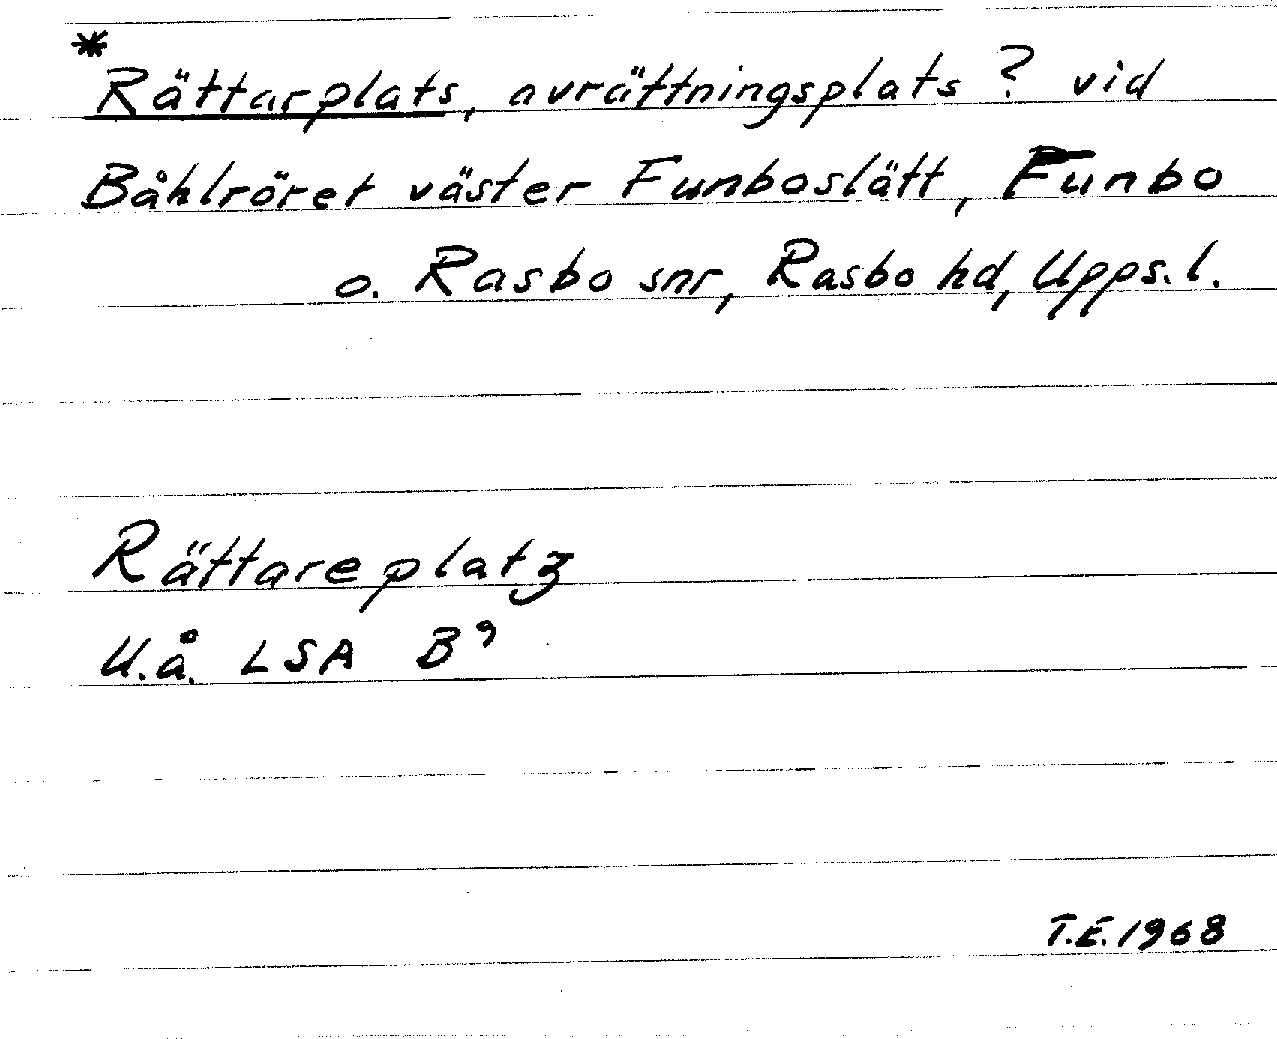 *
Rättarplats, avrättningsplats? vid
Båhlröret väster Funboslätt, Funbo
o. Rasbo snr, Rasbo hd, Upps. l.
Rättareplatz
U.å. LSA B⁹
T.E. 1968